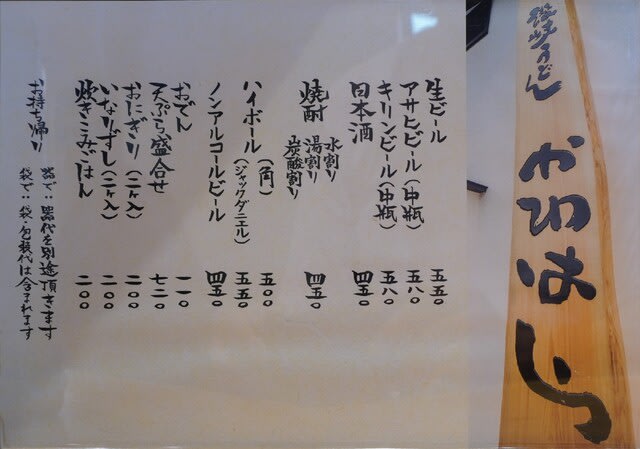 讃岐うどん
かわはら
生ビール 五五〇
アサヒビール(中瓶) 五八〇
キリンビール(中瓶) 五八〇
日本酒 四五〇
焼酎 水割り 湯割り 炭酸割り 四五〇
ハイボール(角) 五〇〇
(ジャックダニエル) 五五〇
ノンアルコールビール 四五〇
おでん 一一〇
天ぷら盛合せ 七二〇
おにぎり(二ヶ入) 二〇〇
いなりずし(二ヶ入) 二〇〇
炊きこみごはん 二〇〇
お持ち帰り
器で:器代を別途頂きます
袋で:袋・包装代は含まれます